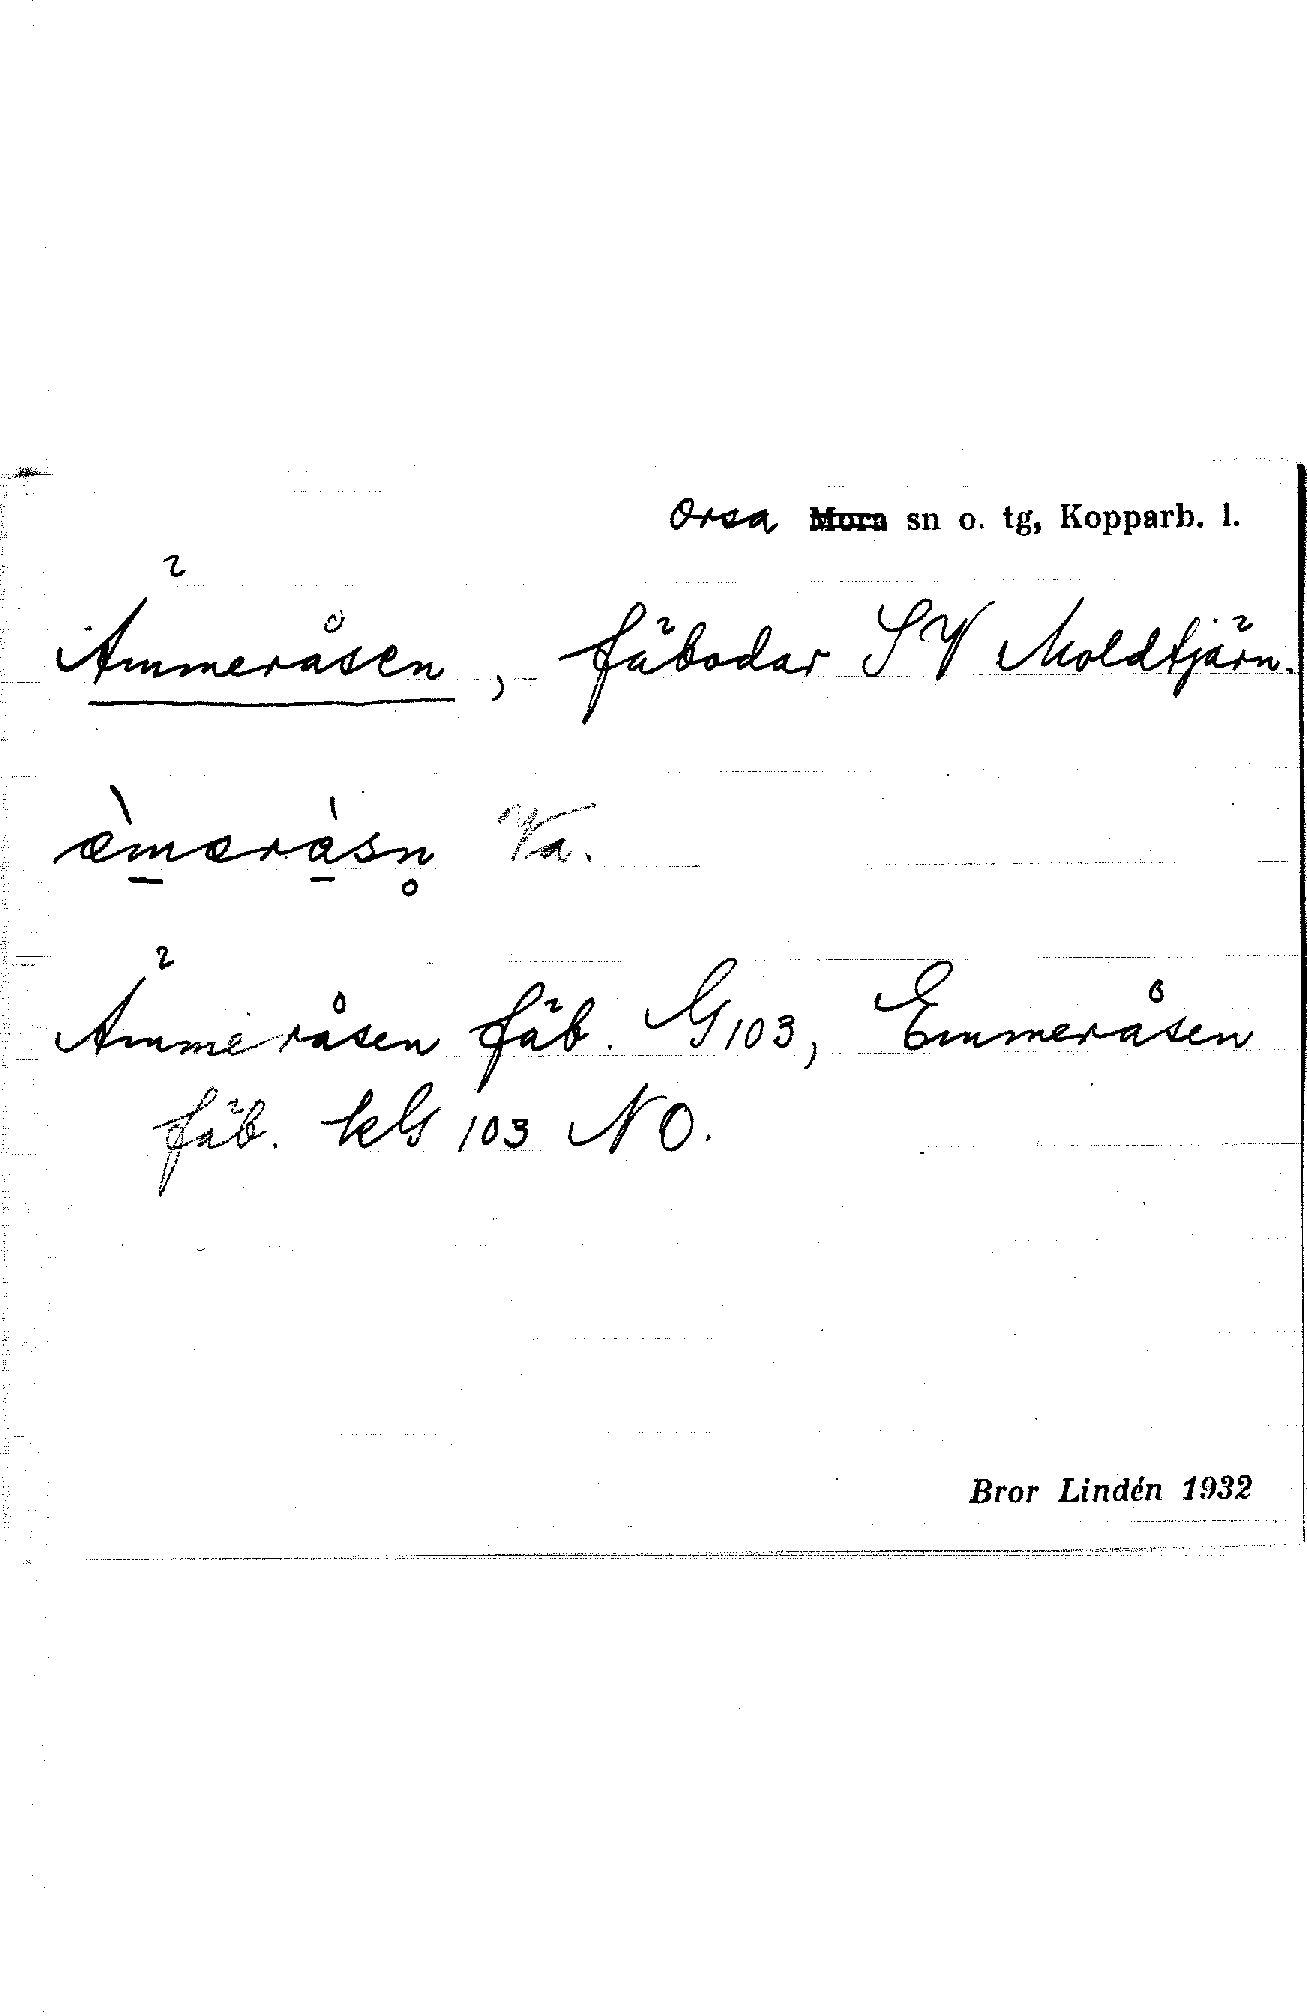 Orsa ~~Mora~~ sn o. tg, Kopparb. l.
Ämmeråsen, fäbodar SV Moldtjärn.
æ̀m̲æra̲̍sn̥ Va.
Ämmeråsen fäb. G103, Emmeråsen
fäb. kG 103 NO.
Bror Lindén 1932